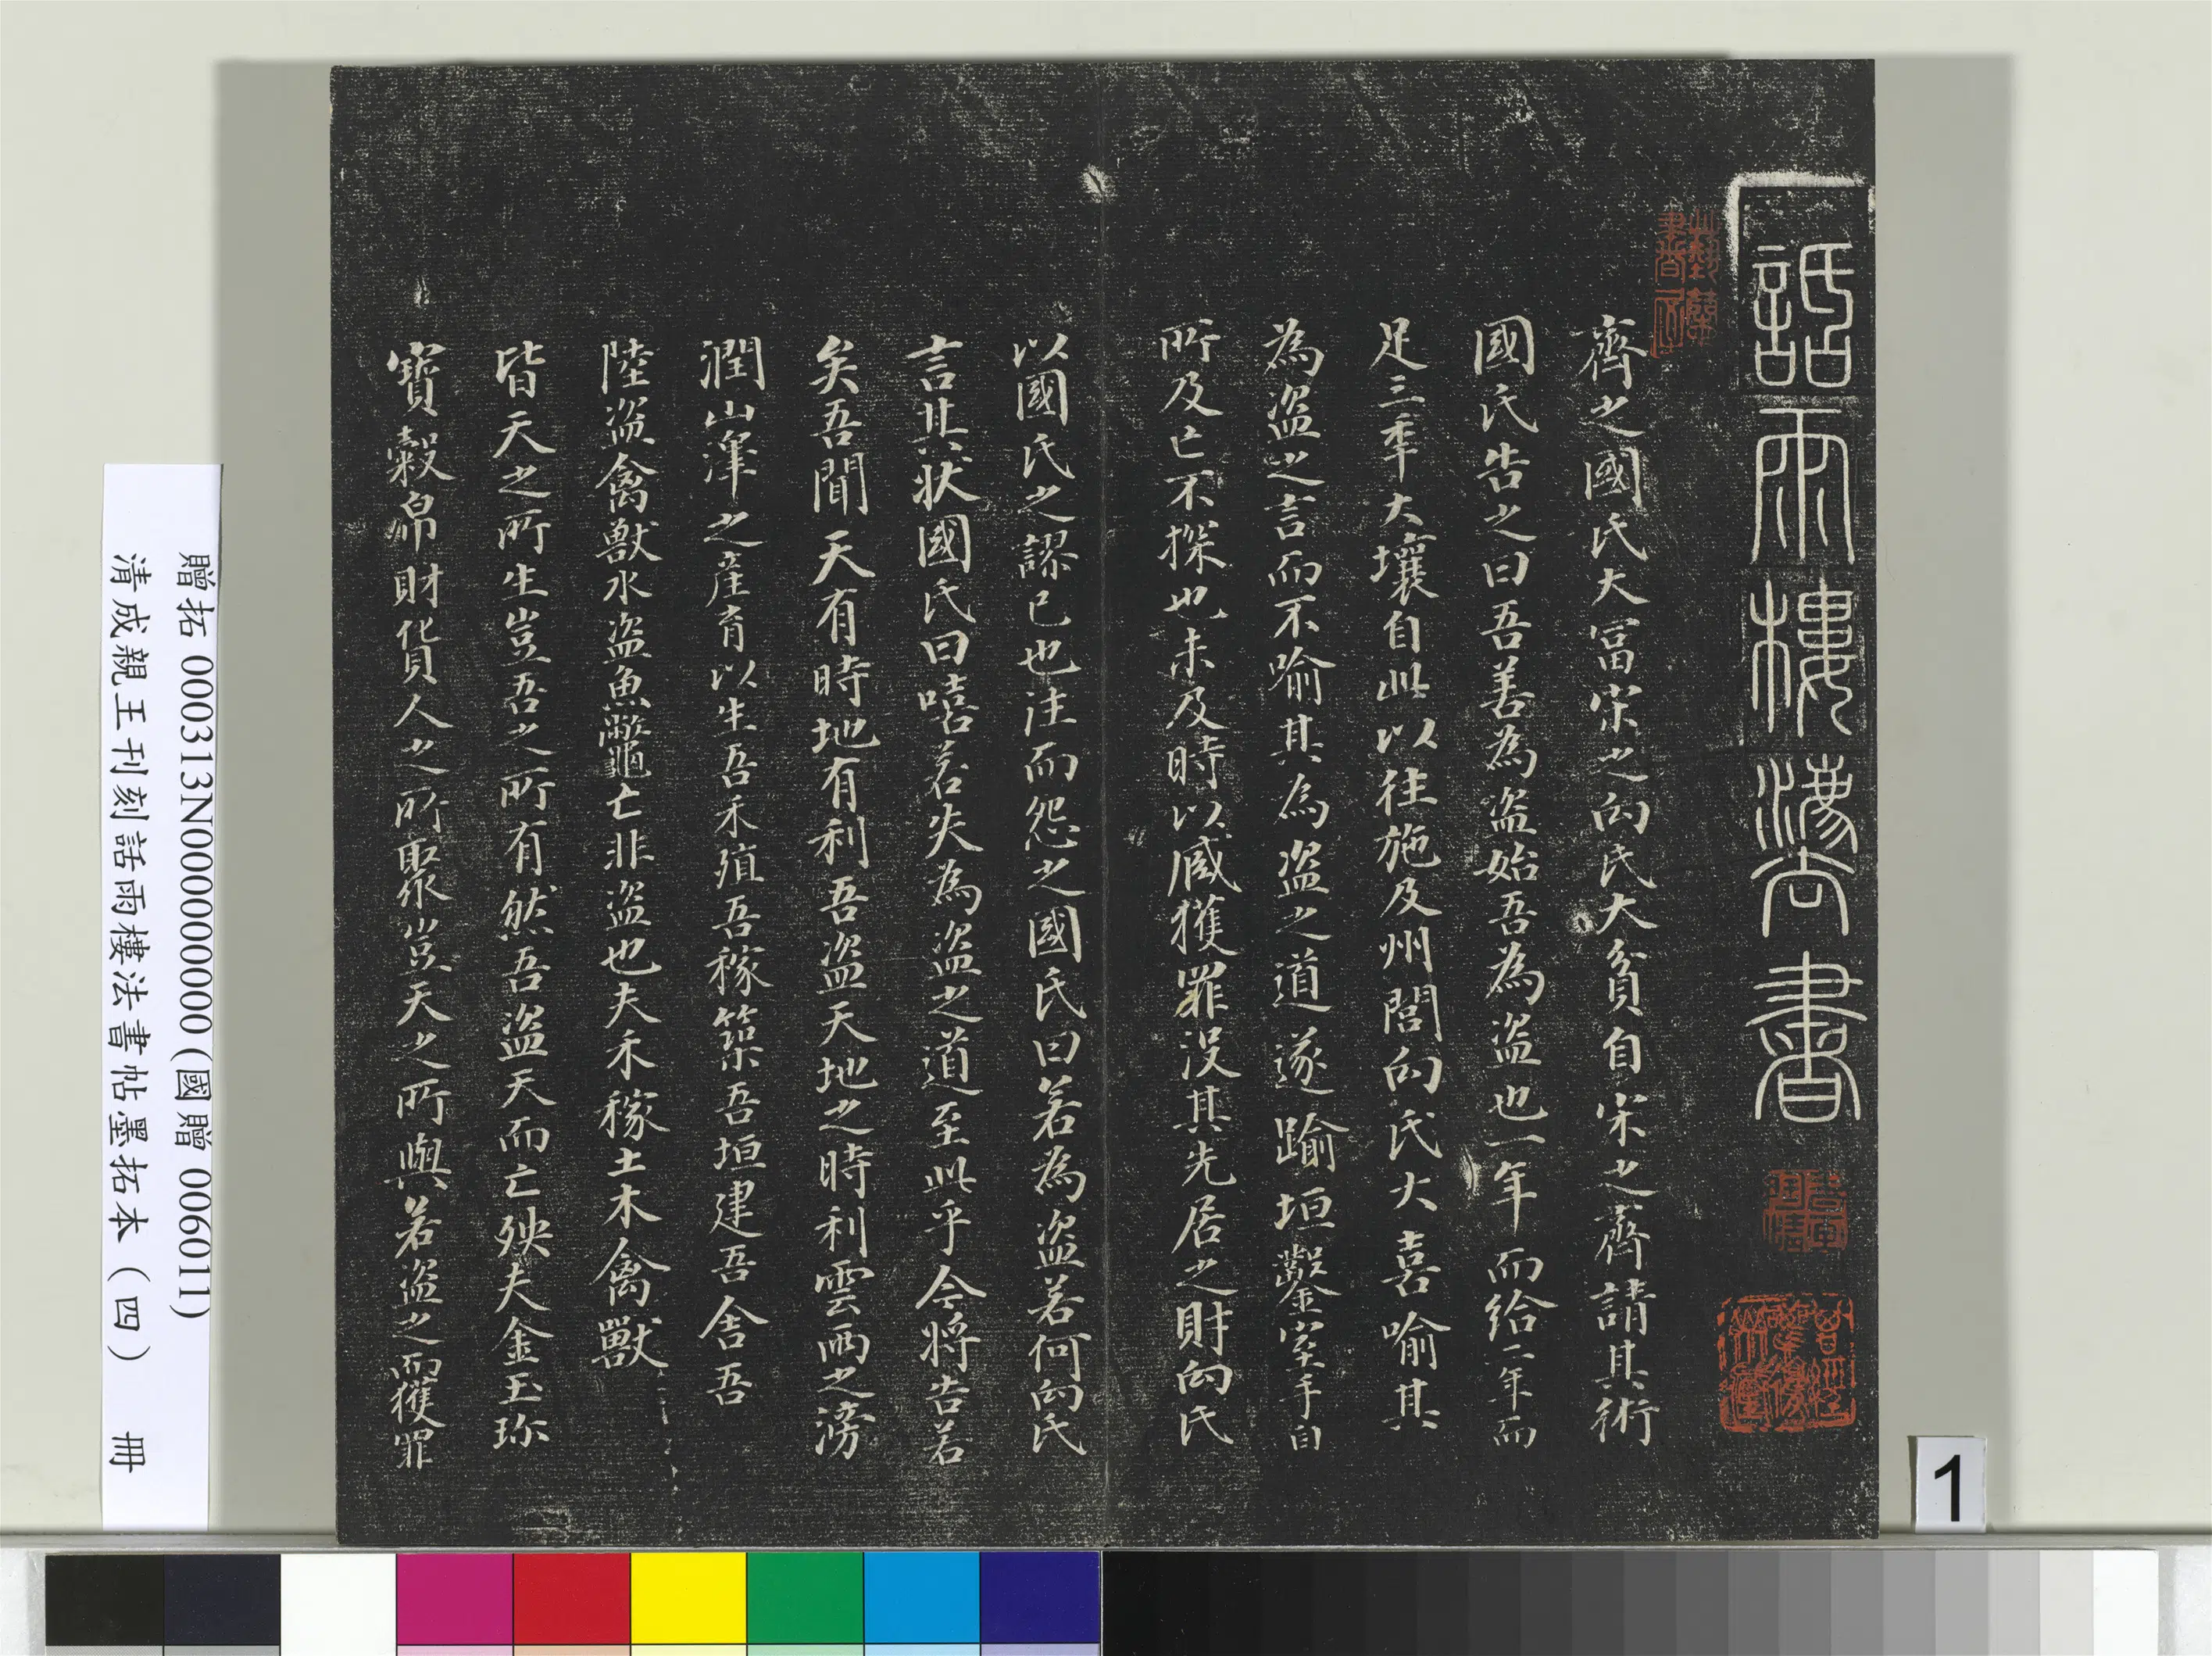 詒晉樓法書
齊之國氏大冨宋之向氏大貧自宋之齊請其術
國氏告之曰吾善為盜始吾為盜也一年而給二年而
足三秊大壤自此以往施及州閭向氏大喜喻其
為盜之言而不喻其為盜之道遂踰垣鑿室手目
所及亡不探也未及時以贓獲罪没其先居之財向氏
以國氏之謬已也往而怨之國氏曰若為盜若何向氏
言其狀國氏曰嘻若失為盜之道至此乎今將告若
矣吾聞天有時地有利吾盜天地之時利雲雨之滂
潤山澤之産育以生吾禾殖吾稼築吾垣建吾舍吾
陸盜禽獸水盜魚鼈亡非盜也夫禾稼土木禽獸
皆天之所生豈吾之所有然吾盜天而亡殃夫金玉珎
寶穀帛財貨人之所聚豈天之所與若盜之而獲罪
贈拓 000313N000000000 (國贈 006011)
清成親王刊刻話雨樓法書帖墨拓本（四） 冊
1